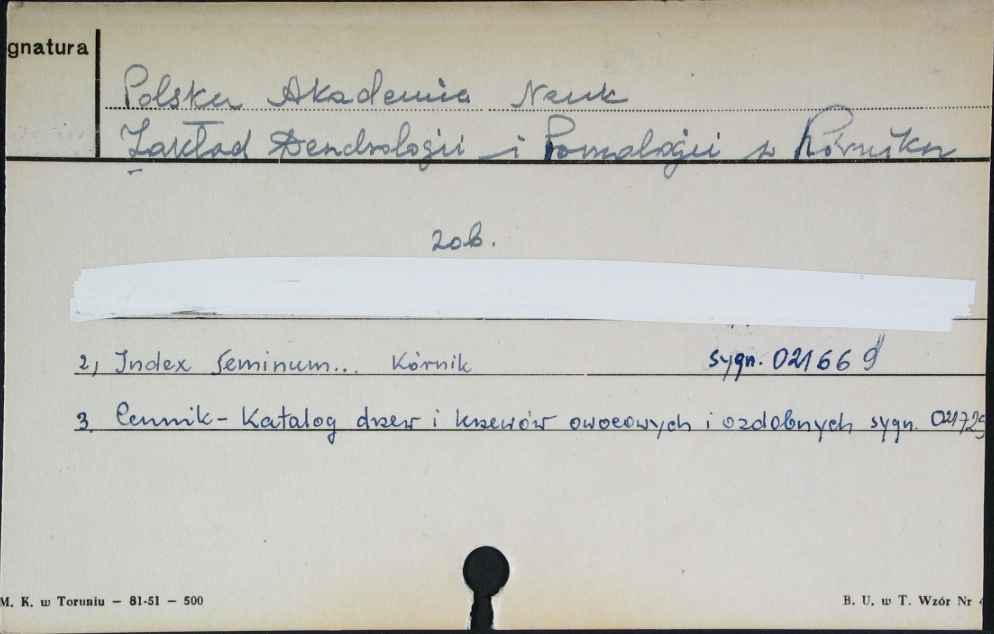 gnatura
Polska Akademia Nauk
Zakład Dendrologii i Pomologii w Kórniku
zob.
2, Index Seminum... Kórnik sygn. 02166 g
3. Cennik - Katalog drzew i krzewów owocowych i ozdobnych sygn. 021729
M. K. w Toruniu — 81-51 — 500
B. U. w T. Wzór Nr